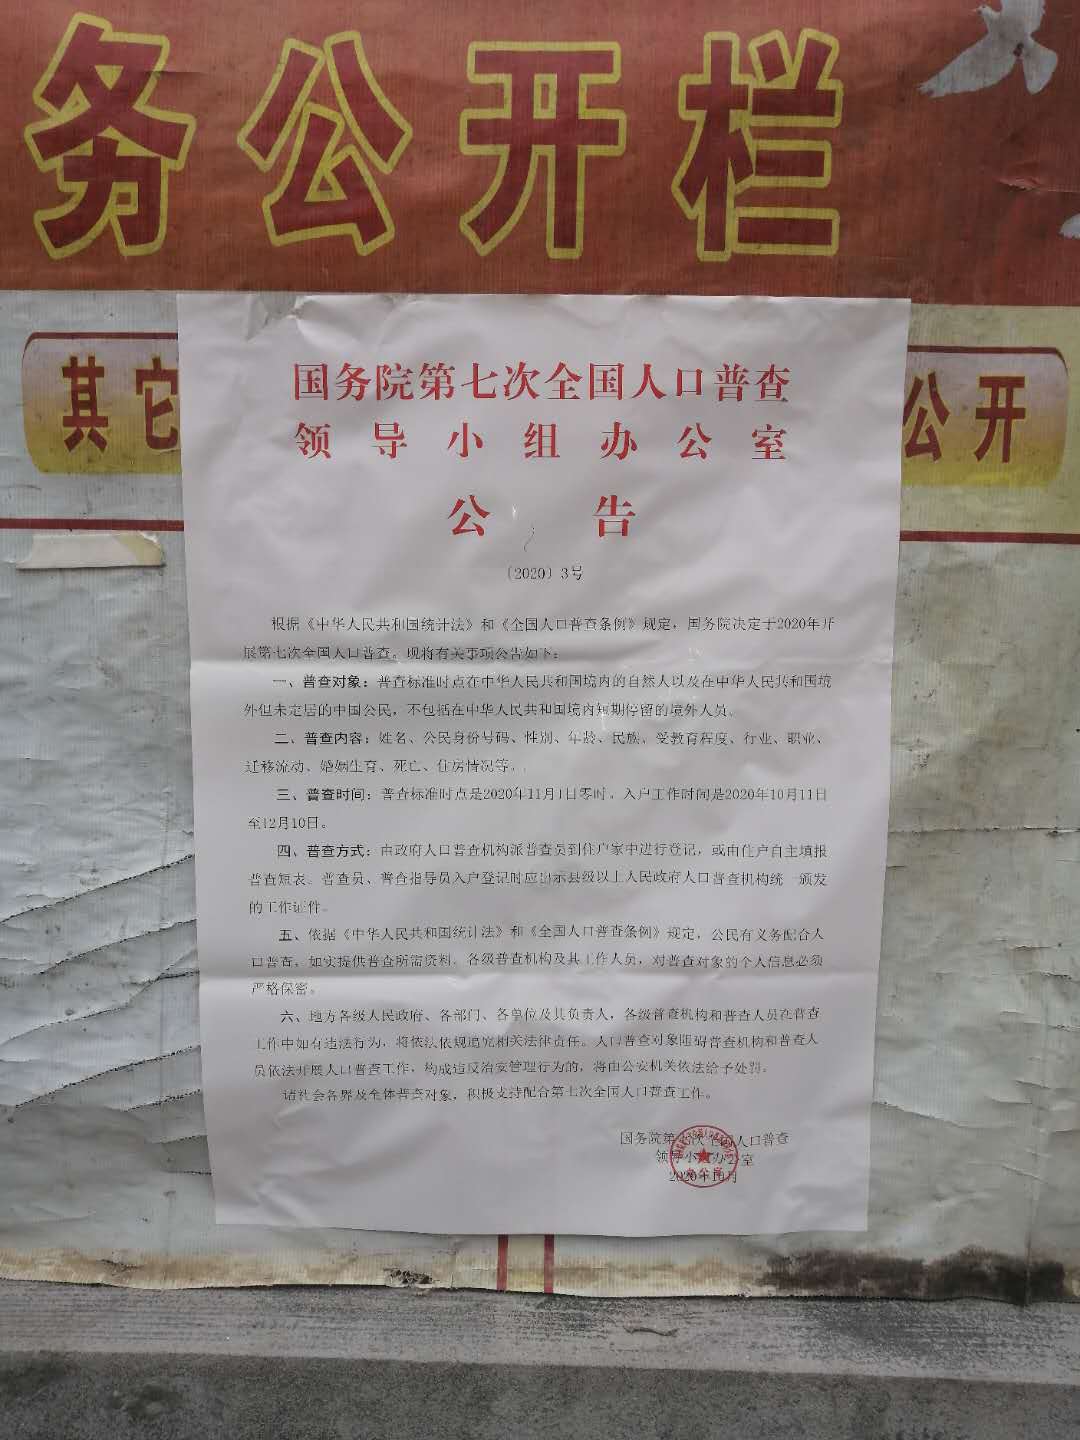 务公开栏
其它
公开
国务院第七次全国人口普查
领导小组办公室
公告
〔2020〕3号
根据《中华人民共和国统计法》和《全国人口普查条例》规定，国务院决定于2020年开
展第七次全国人口普查。现将有关事项公告如下：
一、普查对象：普查标准时点在中华人民共和国境内的自然人以及在中华人民共和国境
外但未定居的中国公民，不包括在中华人民共和国境内短期停留的境外人员。
二、普查内容：姓名、公民身份号码、性别、年龄、民族、受教育程度、行业、职业、
迁移流动、婚姻生育、死亡、住房情况等。
三、普查时间：普查标准时点是2020年11月1日零时，入户工作时间是2020年10月11日
至12月10日。
四、普查方式：由政府人口普查机构派普查员到住户家中进行登记，或由住户自主填报
普查短表。普查员、普查指导员入户登记时应出示县级以上人民政府人口普查机构统一颁发
的工作证件。
五、依据《中华人民共和国统计法》和《全国人口普查条例》规定，公民有义务配合人
口普查，如实提供普查所需资料。各级普查机构及其工作人员，对普查对象的个人信息必须
严格保密。
六、地方各级人民政府、各部门、各单位及其负责人，各级普查机构和普查人员在普查
工作中如有违法行为，将依法依规追究相关法律责任。人口普查对象阻碍普查机构和普查人
员依法开展人口普查工作，构成违反治安管理行为的，将由公安机关依法给予处罚。
请社会各界及全体普查对象，积极支持配合第七次全国人口普查工作。
国务院第七次全国人口普查
领导小组办公室
2020年10月